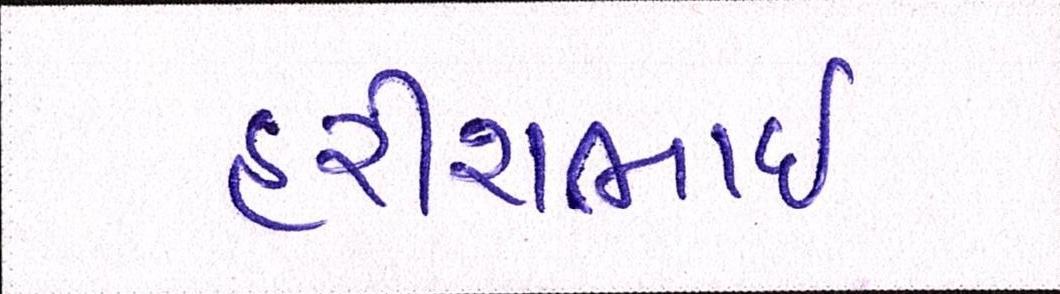 હરીશભાઈ